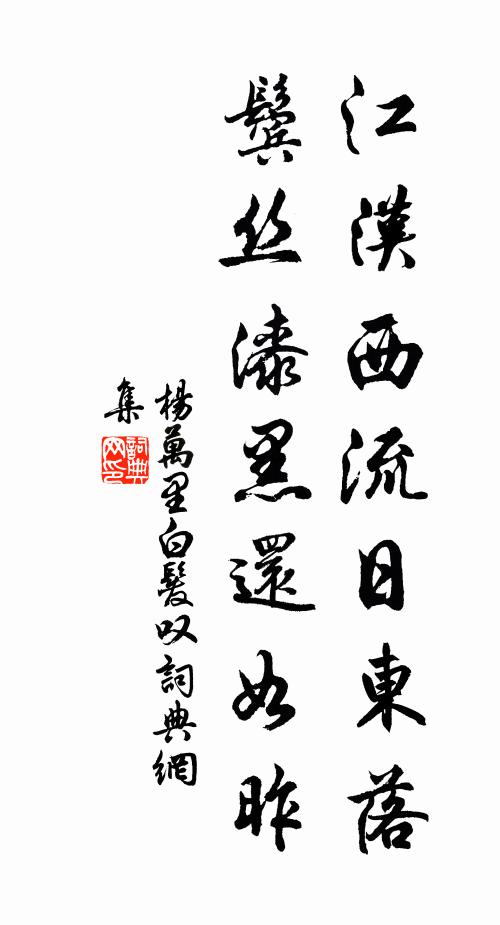 江漢西流日東落
鬓丝漆黑還如昨
楊萬里白髮叹詞典網
集
詞典
网印